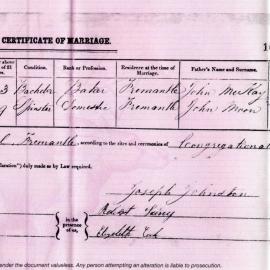 CERTIFICATE OF MARRIAGE.
Condition. Rank or Profession. Residence at the time of Marriage. Father's Name and Surname.
3 Bachelor Baker Fremantle John
9 Spinster Domestic Fremantle John Moon
Fremantle, according to the rites and ceremonies of Congregational
duly made as by Law required.
Joseph Johnston
in the presence of us,
Robert
Elizabeth
under the document valueless. Any person attempting an alteration is liable to prosecution.